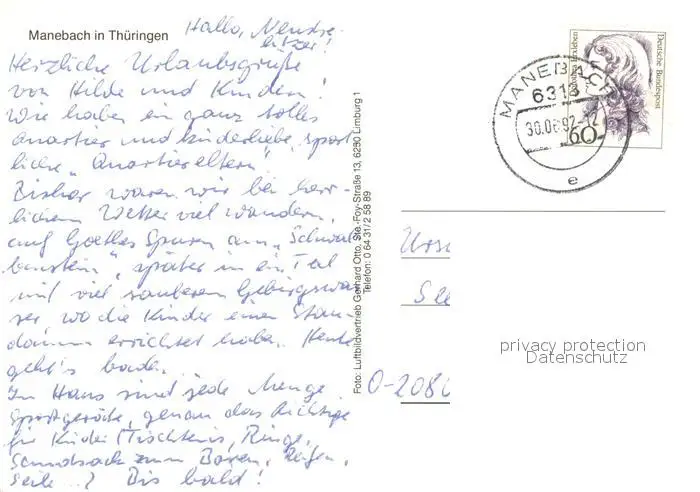 Manebach in Thüringen
Hallo, Neustre-
litzer!
Herzliche Urlaubsgrüße
von Hilde und Kindern!
Wir haben ein ganz tolles
Quartier und kinderliebe, sport-
liche „Quartiereltern“.
Bisher waren wir bei herr-
lichem Wetter viel wandern,
auf Goethes Spuren am „Schwal-
benstein“, später in ein Tal
mit viel sauberem Gebirgswas-
ser, wo die Kinder einen Stau-
damm errichtet haben. Heute
geht's baden.
Im Haus sind jede Menge
Sportgeräte, genau das Richtige
für Kinder (Tischtennis, Ringe,
Sandsack zum Boxen, Reifen,
Seile ..) Bis bald!
Foto: Luftbildvertrieb Gerhard Otto, Ste.-Foy-Straße 13, 6250 Limburg 1
Telefon: 0 64 31/2 58 89
Deutsche Bundespost
60
MANEBACH
6313
30.06.92-12
e
O-208
privacy protection
Datenschutz